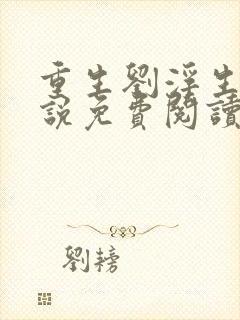 重生劉淫生
說免費閱讀
劉搒